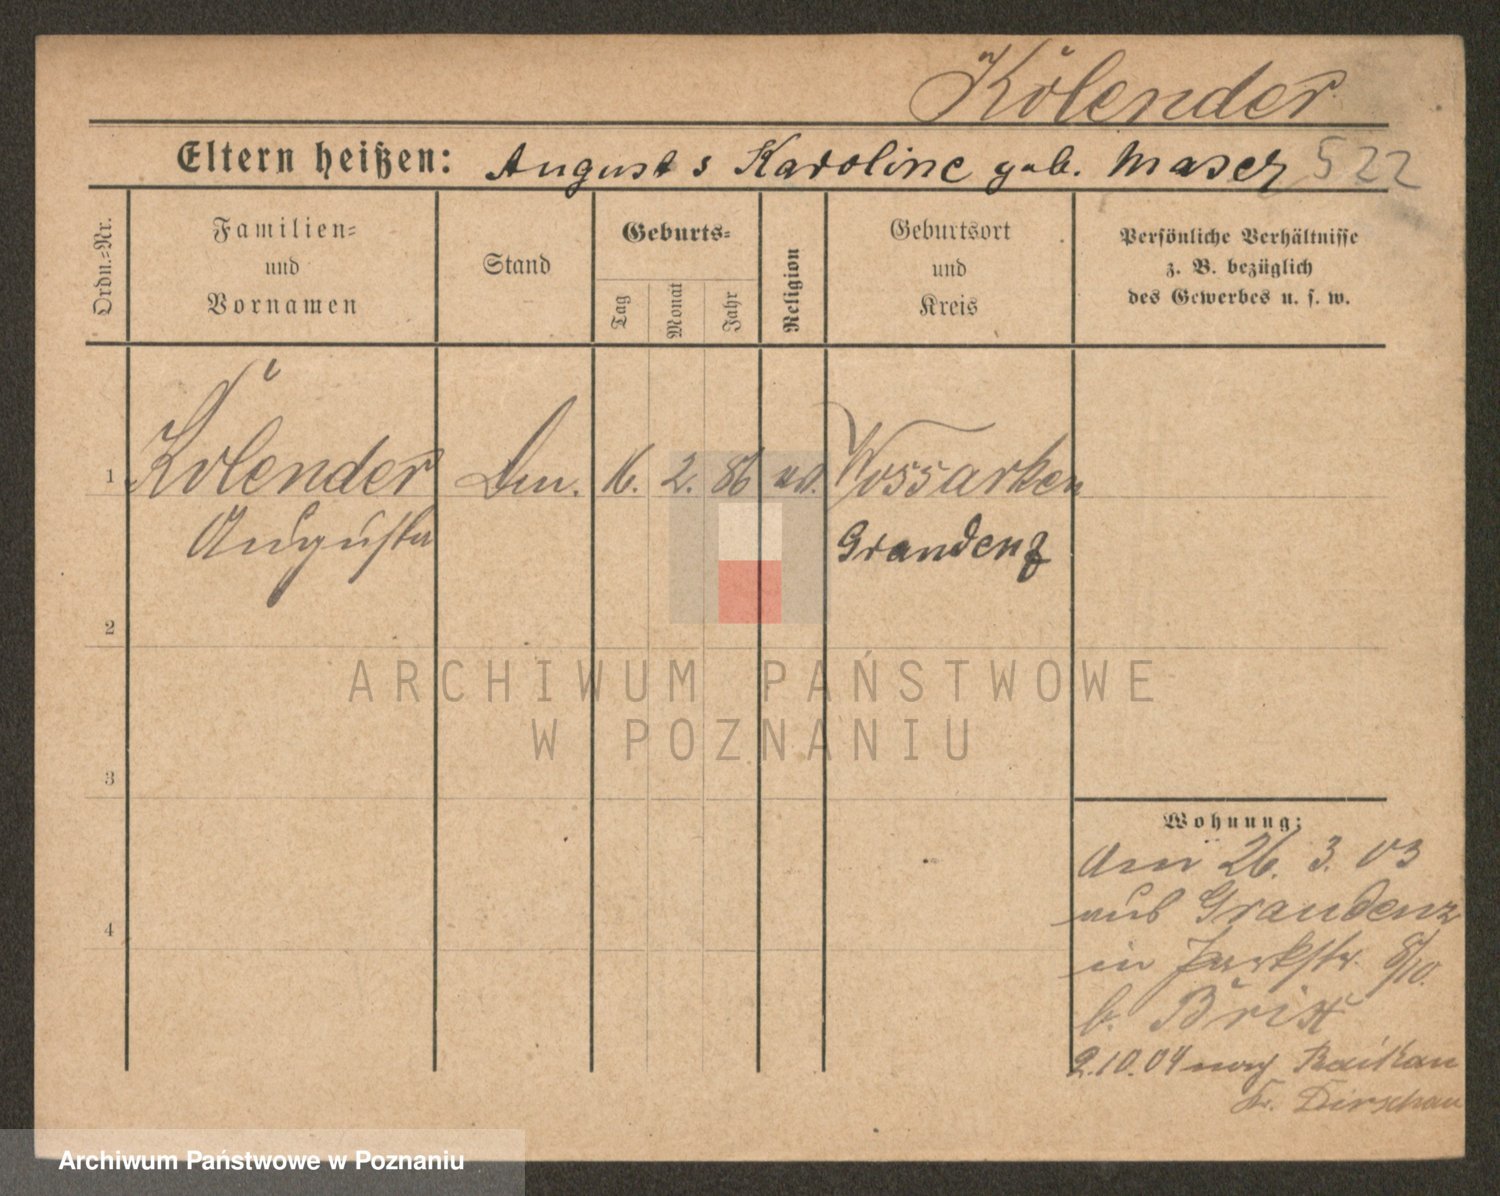 Kölender
Eltern heißen: August & Karoline geb. Maser 522
Ordn.-Nr.
Familien-
und
Vornamen
Stand
Geburts-
Tag
Monat
Jahr
Religion
Geburtsort
und
Kreis
Persönliche Verhältnisse
z. B. bezüglich
des Gewerbes u. s. w.
1 Kölender 16. 2. 86 Wossarken
Augusta Graudenz
2
3
4
ARCHIWUM PAŃSTWOWE
W POZNANIU
Wohnung:
Am 26. 3. 03
aus Graudenz
in Parkstr. 8/10.
b. Britt
2.10.04 nach Raikau
Kr. Dirschau
Archiwum Państwowe w Poznaniu